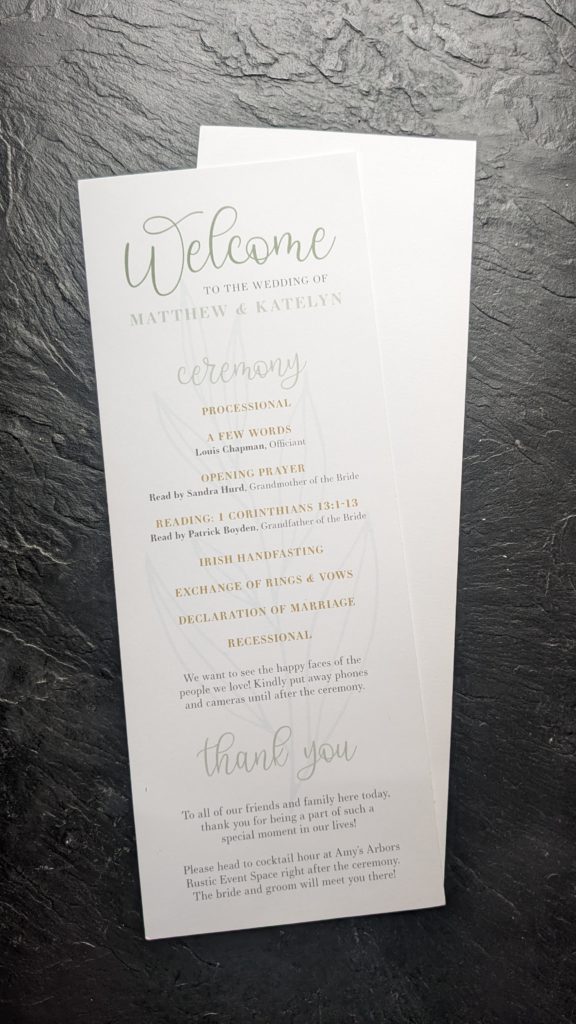 Welcome
TO THE WEDDING OF
MATTHEW & KATELYN
ceremony
PROCESSIONAL
A FEW WORDS
Louis Chapman, Officiant
OPENING PRAYER
Read by Sandra Hurd, Grandmother of the Bride
READING: 1 CORINTHIANS 13:1-13
Read by Patrick Boyden, Grandfather of the Bride
IRISH HANDFASTING
EXCHANGE OF RINGS & VOWS
DECLARATION OF MARRIAGE
RECESSIONAL
We want to see the happy faces of the
people we love! Kindly put away phones
and cameras until after the ceremony.
thank you
To all of our friends and family here today,
thank you for being a part of such a
special moment in our lives!
Please head to cocktail hour at Amy's Arbors
Rustic Event Space right after the ceremony.
The bride and groom will meet you there!